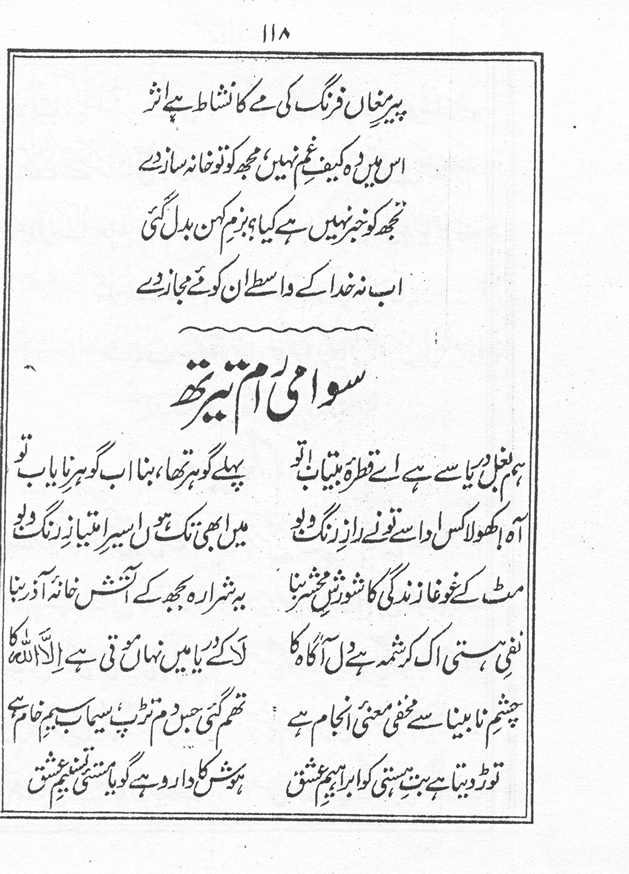 ۱۱۸
پیرِ مغاں فرنگ کی مے کا نشاط ہے اثر
اس میں وہ کیفِ غم نہیں، مجھ کو تو خانہ ساز دے
تجھ کو خبر نہیں ہے کیا؟ بزمِ کہن بدل گئی
اب نہ خدا کے واسطے ان کو مئے مجاز دے
سوامی رام تیرتھ
ہم بغل دریا سے ہے اے قطرۂ بیتاب تو پہلے گوہر تھا، بنا اب گوہرِ نایاب تو
آہ! کھولا کس ادا سے تو نے رازِ رنگ و بو میں ابھی تک ہوں اسیرِ امتیازِ رنگ و بو
مٹ کے غوغا زندگی کا شورشِ محشر بنا یہ شرارہ بجھ کے آتش خانۂ آذر بنا
نفیِ ہستی اک کرشمہ ہے دلِ آگاہ کا لَا کے دریا میں نہاں موتی ہے اِلَّا اللہ کا
چشمِ نابینا سے مخفی معنئ انجام ہے تھم گئی جس دم تڑپ، سیماب سیمِ خام ہے
توڑ دیتا ہے بتِ ہستی کو ابراہیمِ عشق ہوش کا دارو ہے گویا مستئ تسنیمِ عشق